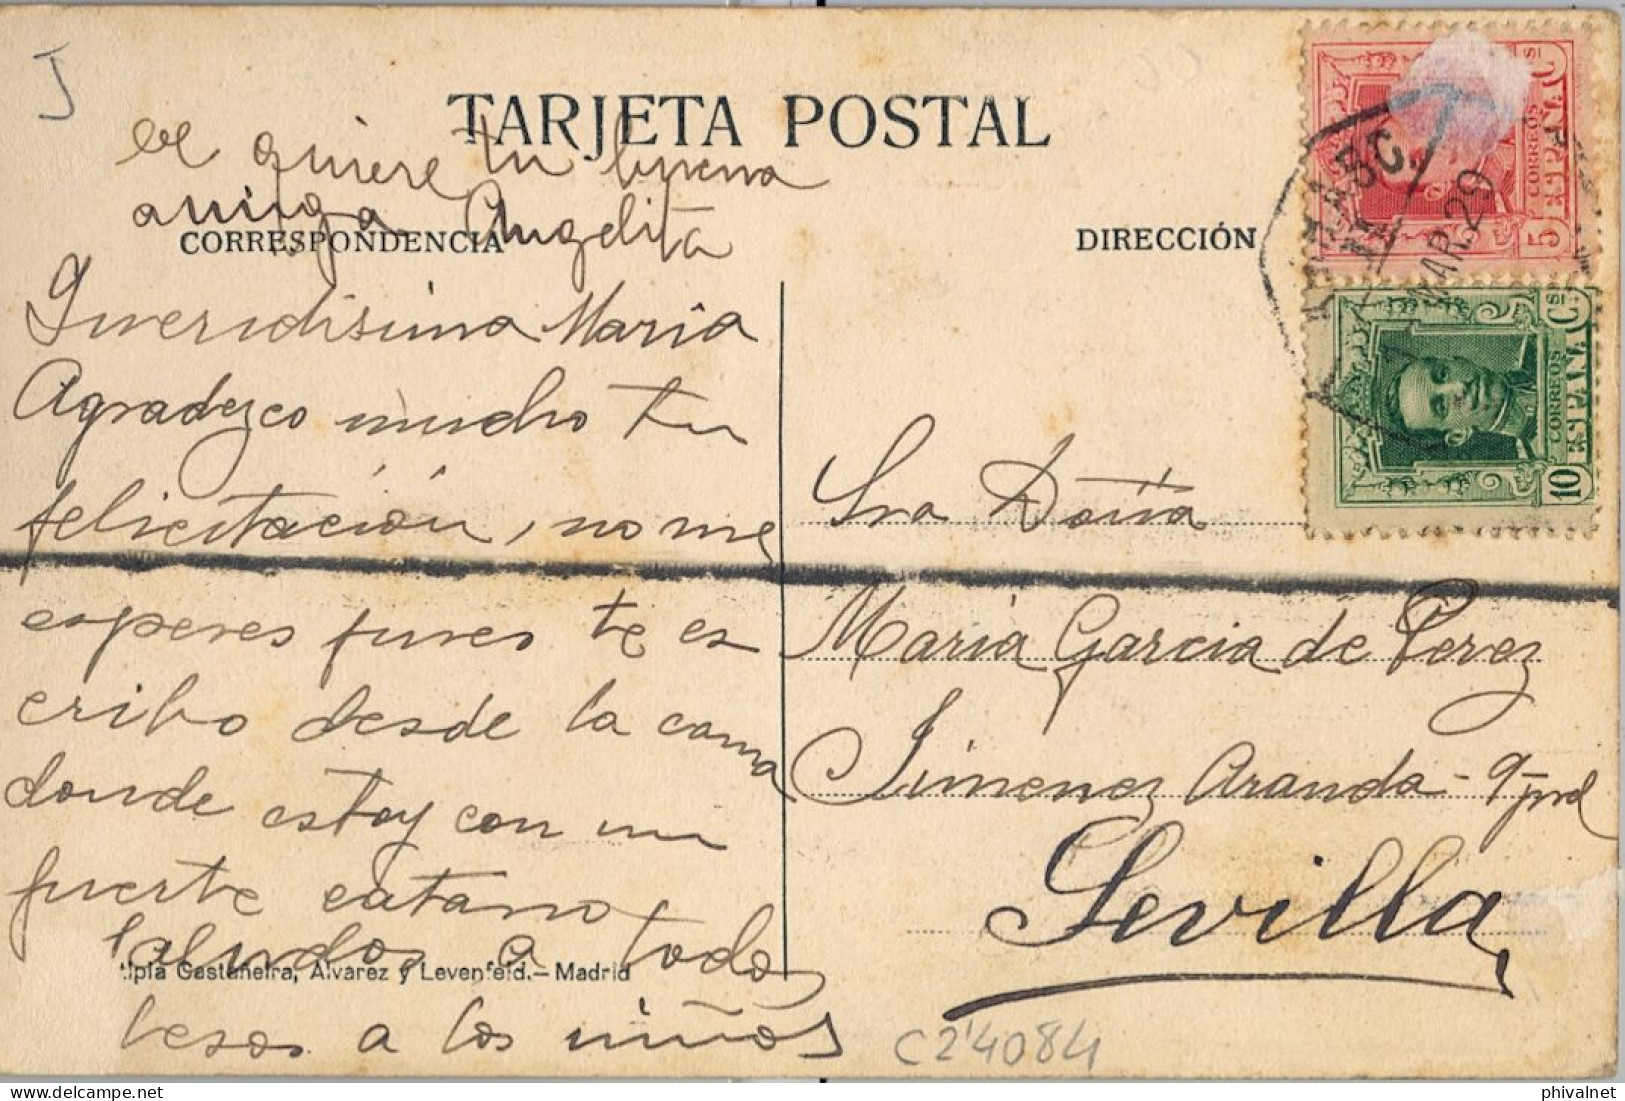 J
TARJETA POSTAL
CORRESPONDENCIA
DIRECCIÓN
Queridísima María
Agradezco mucho tu
felicitación, no me
esperes pues te es
cribo desde la cama
donde estoy con un
fuerte catarro
saludos a todos
besos a los niños
te quiere tu buena
amiga Angelita
tipia Castañeira, Alvarez y Levenfeld.— Madrid
5 Cs
CORREOS
ESPAÑA
MAR.29
10 Cs
CORREOS
ESPAÑA
Sra Doña
María Garcia de Perez
Jimenez Aranda - 9 pral
Sevilla
C24084
phivalnet